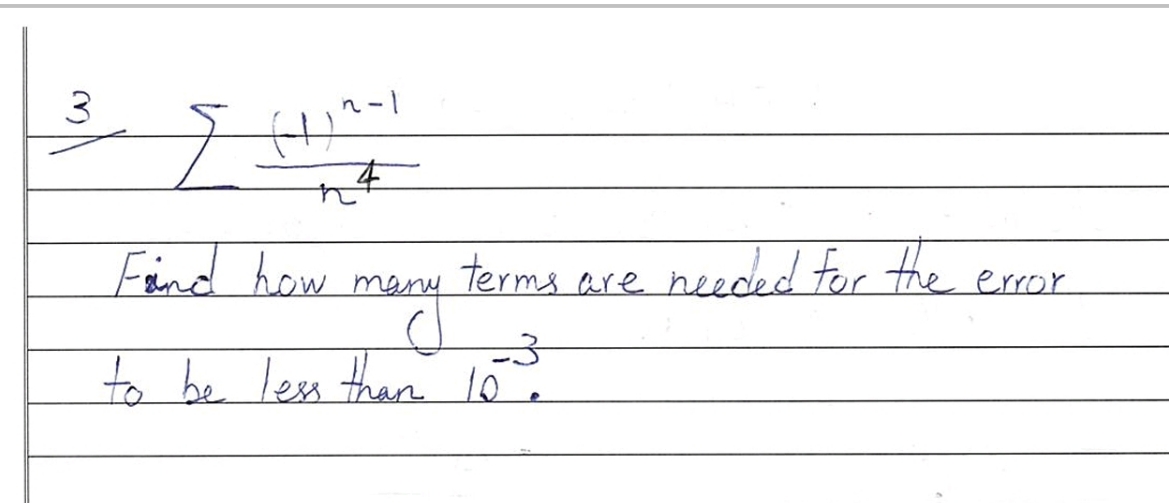 3 ∑ (-1)^(n-1) / n^4
Find how many terms are needed for the error
to be less than 10^-3.